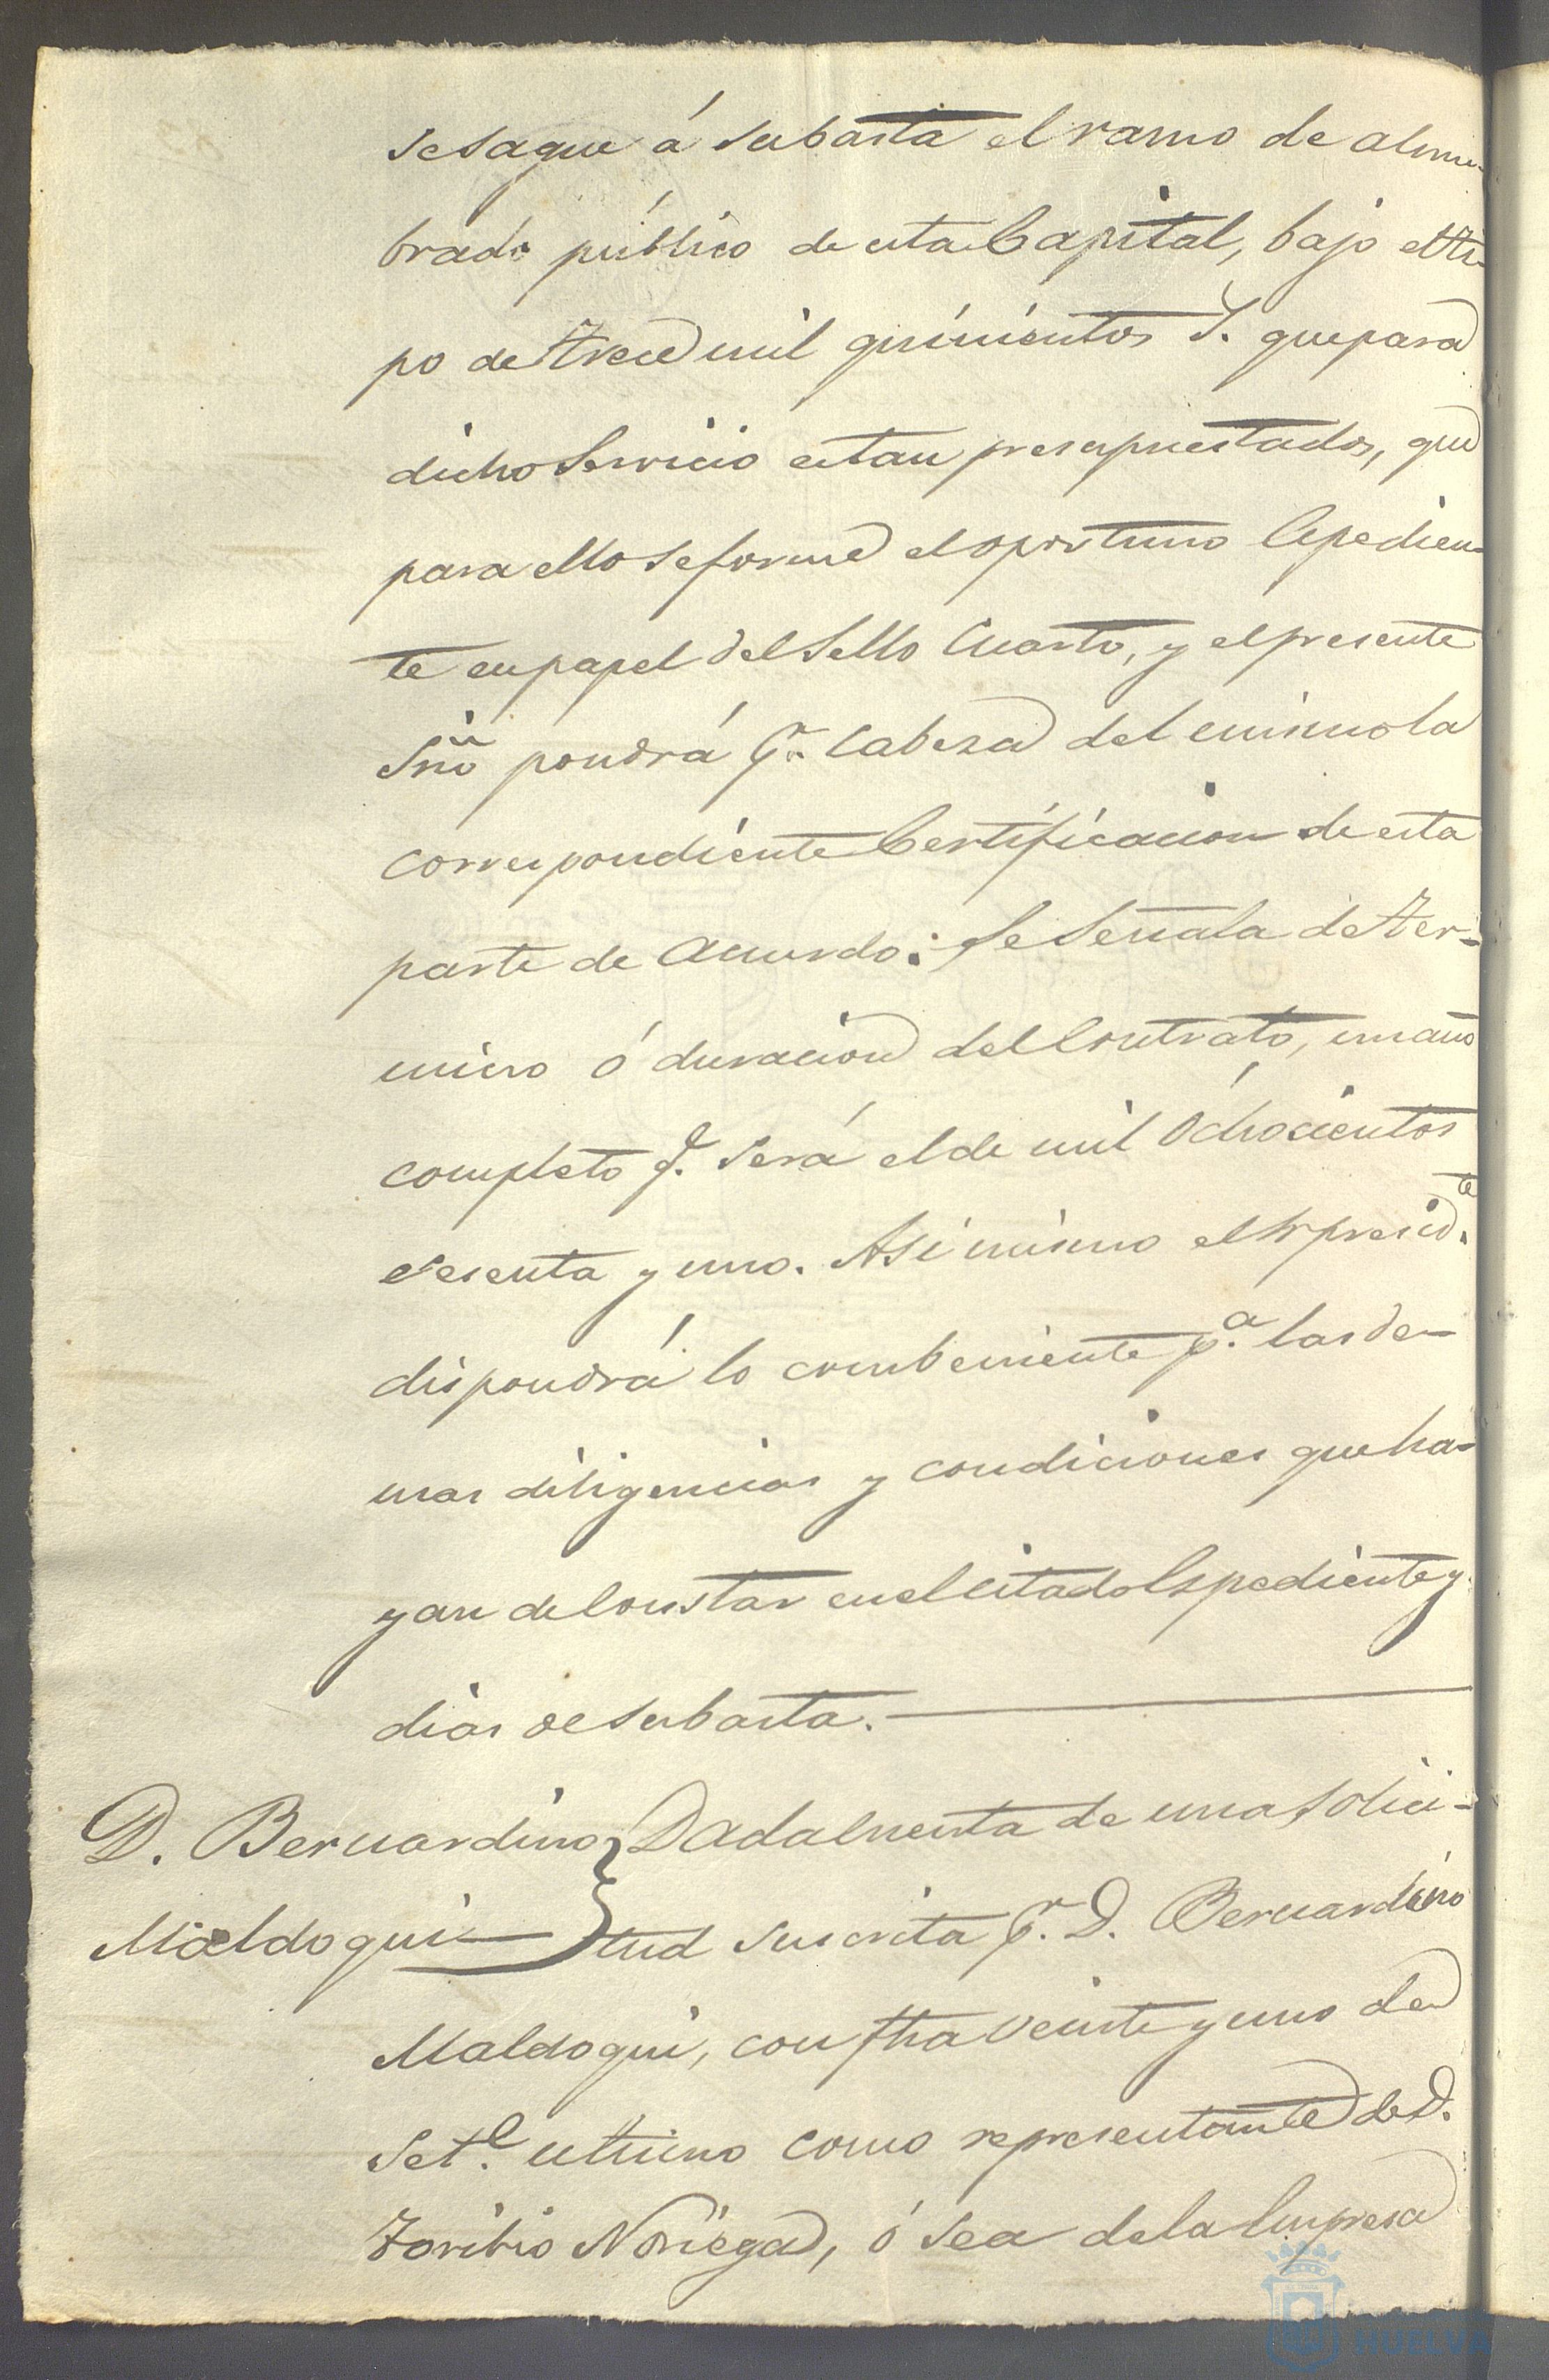 se saque á subasta el ramo de alum-
brado público de esta Capital, bajo el ti-
po de trece mil quinientos r. que para
dicho Servicio estan presupuestados, que
para ello se forme el oportuno Espedien-
te en papel del Sello Cuarto, y el presente
Srio pondrá pr. cabeza del mismo la
correspondiente Certificacion de esta
parte de Acuerdo: Se Señala de ter-
mino ó duracion del Contrato, un año
completo q. será el de mil Ochocientos
sesenta y uno. Asi mismo el Sr presidte.
dispondrá lo combeniente pa. las de-
mas diligencias y condiciones que ha-
yan de Constar en el citado Espediente y
dias de subasta.
D. Bernardino
Maldoqui
Dada Cuenta de una solici-
tud suscrita pr. D. Bernardino
Maldoqui, con fha veinte y uno de
Sete. último como representante de D.
Toribio Noriega, ó sea de la Empresa
HUELVA